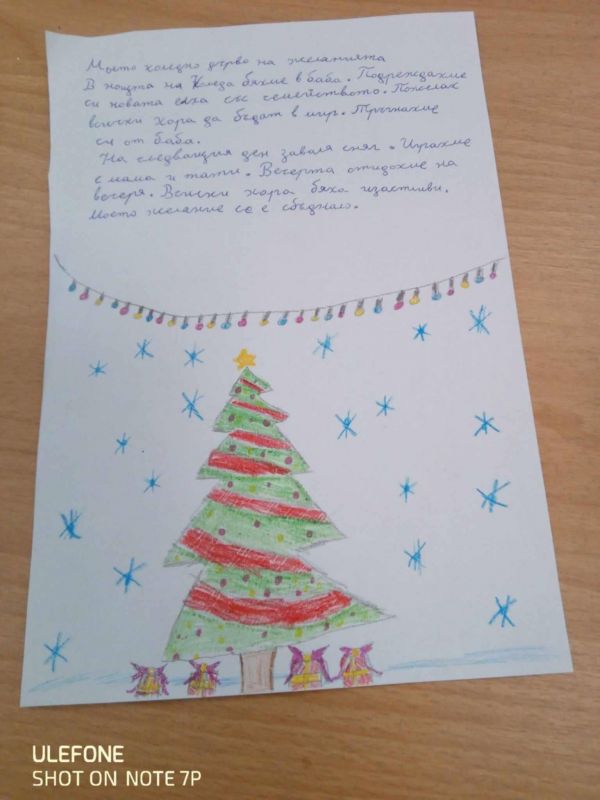 Моето коледно дърво на желанията
В нощта на Коледа бяхме в баба. Подреждахме
си новата елха със семейството. Пожелах
всички хора да бъдат в мир. Тръгнахме
си от баба.
На следващия ден заваля сняг. Играхме
с мама и тати. Вечерта отидохме на
вечеря. Всички хора бяха щастливи.
Моето желание се е сбъднало.
ULEFONE
SHOT ON NOTE 7P